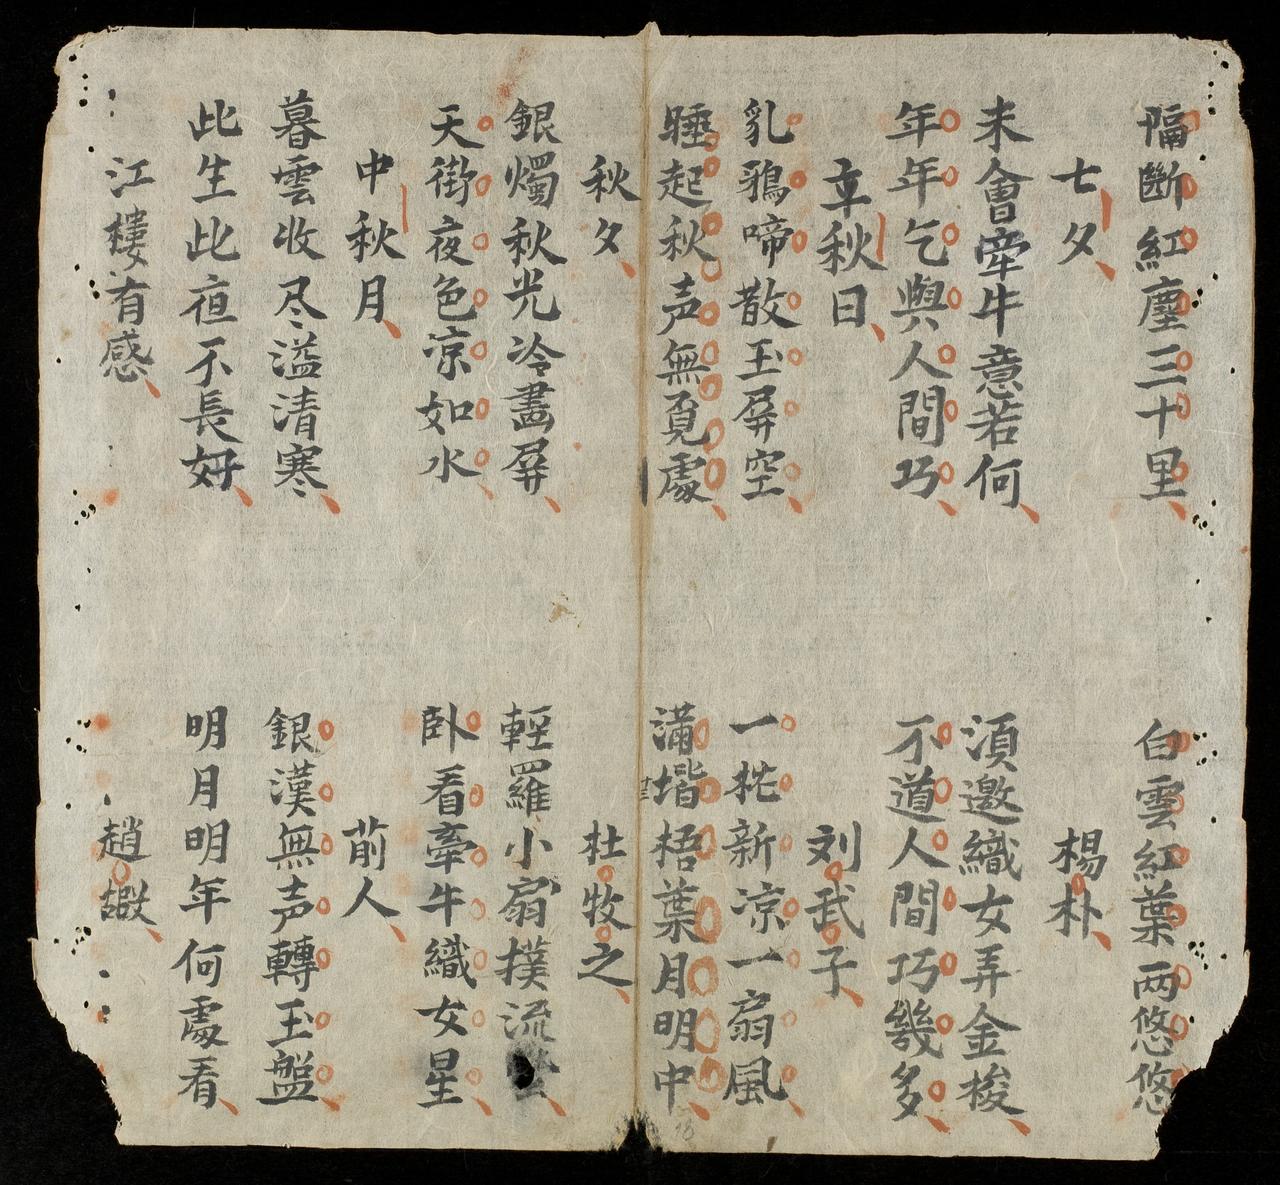 隔斷紅塵三十里
白雲紅葉两悠悠
七夕
楊朴
未會牵牛意若何
湏邀織女弄金梭
年年乞與人間巧
不道人間巧幾多
立秋日
刘武子
乳鴉啼散玉屏空
一枕新凉一扇風
睡起秋声無覓處
滿堦梧葉月明中
十三
秋夕
杜牧之
銀燭秋光冷畵屏
輕羅小扇撲流螢
天街夜色凉如水
卧看牽牛織女星
中秋月
前人
暮雲收尽溢清寒
銀漢無声轉玉盤
此生此夜不長好
明月明年何處看
江樓有感
趙嘏